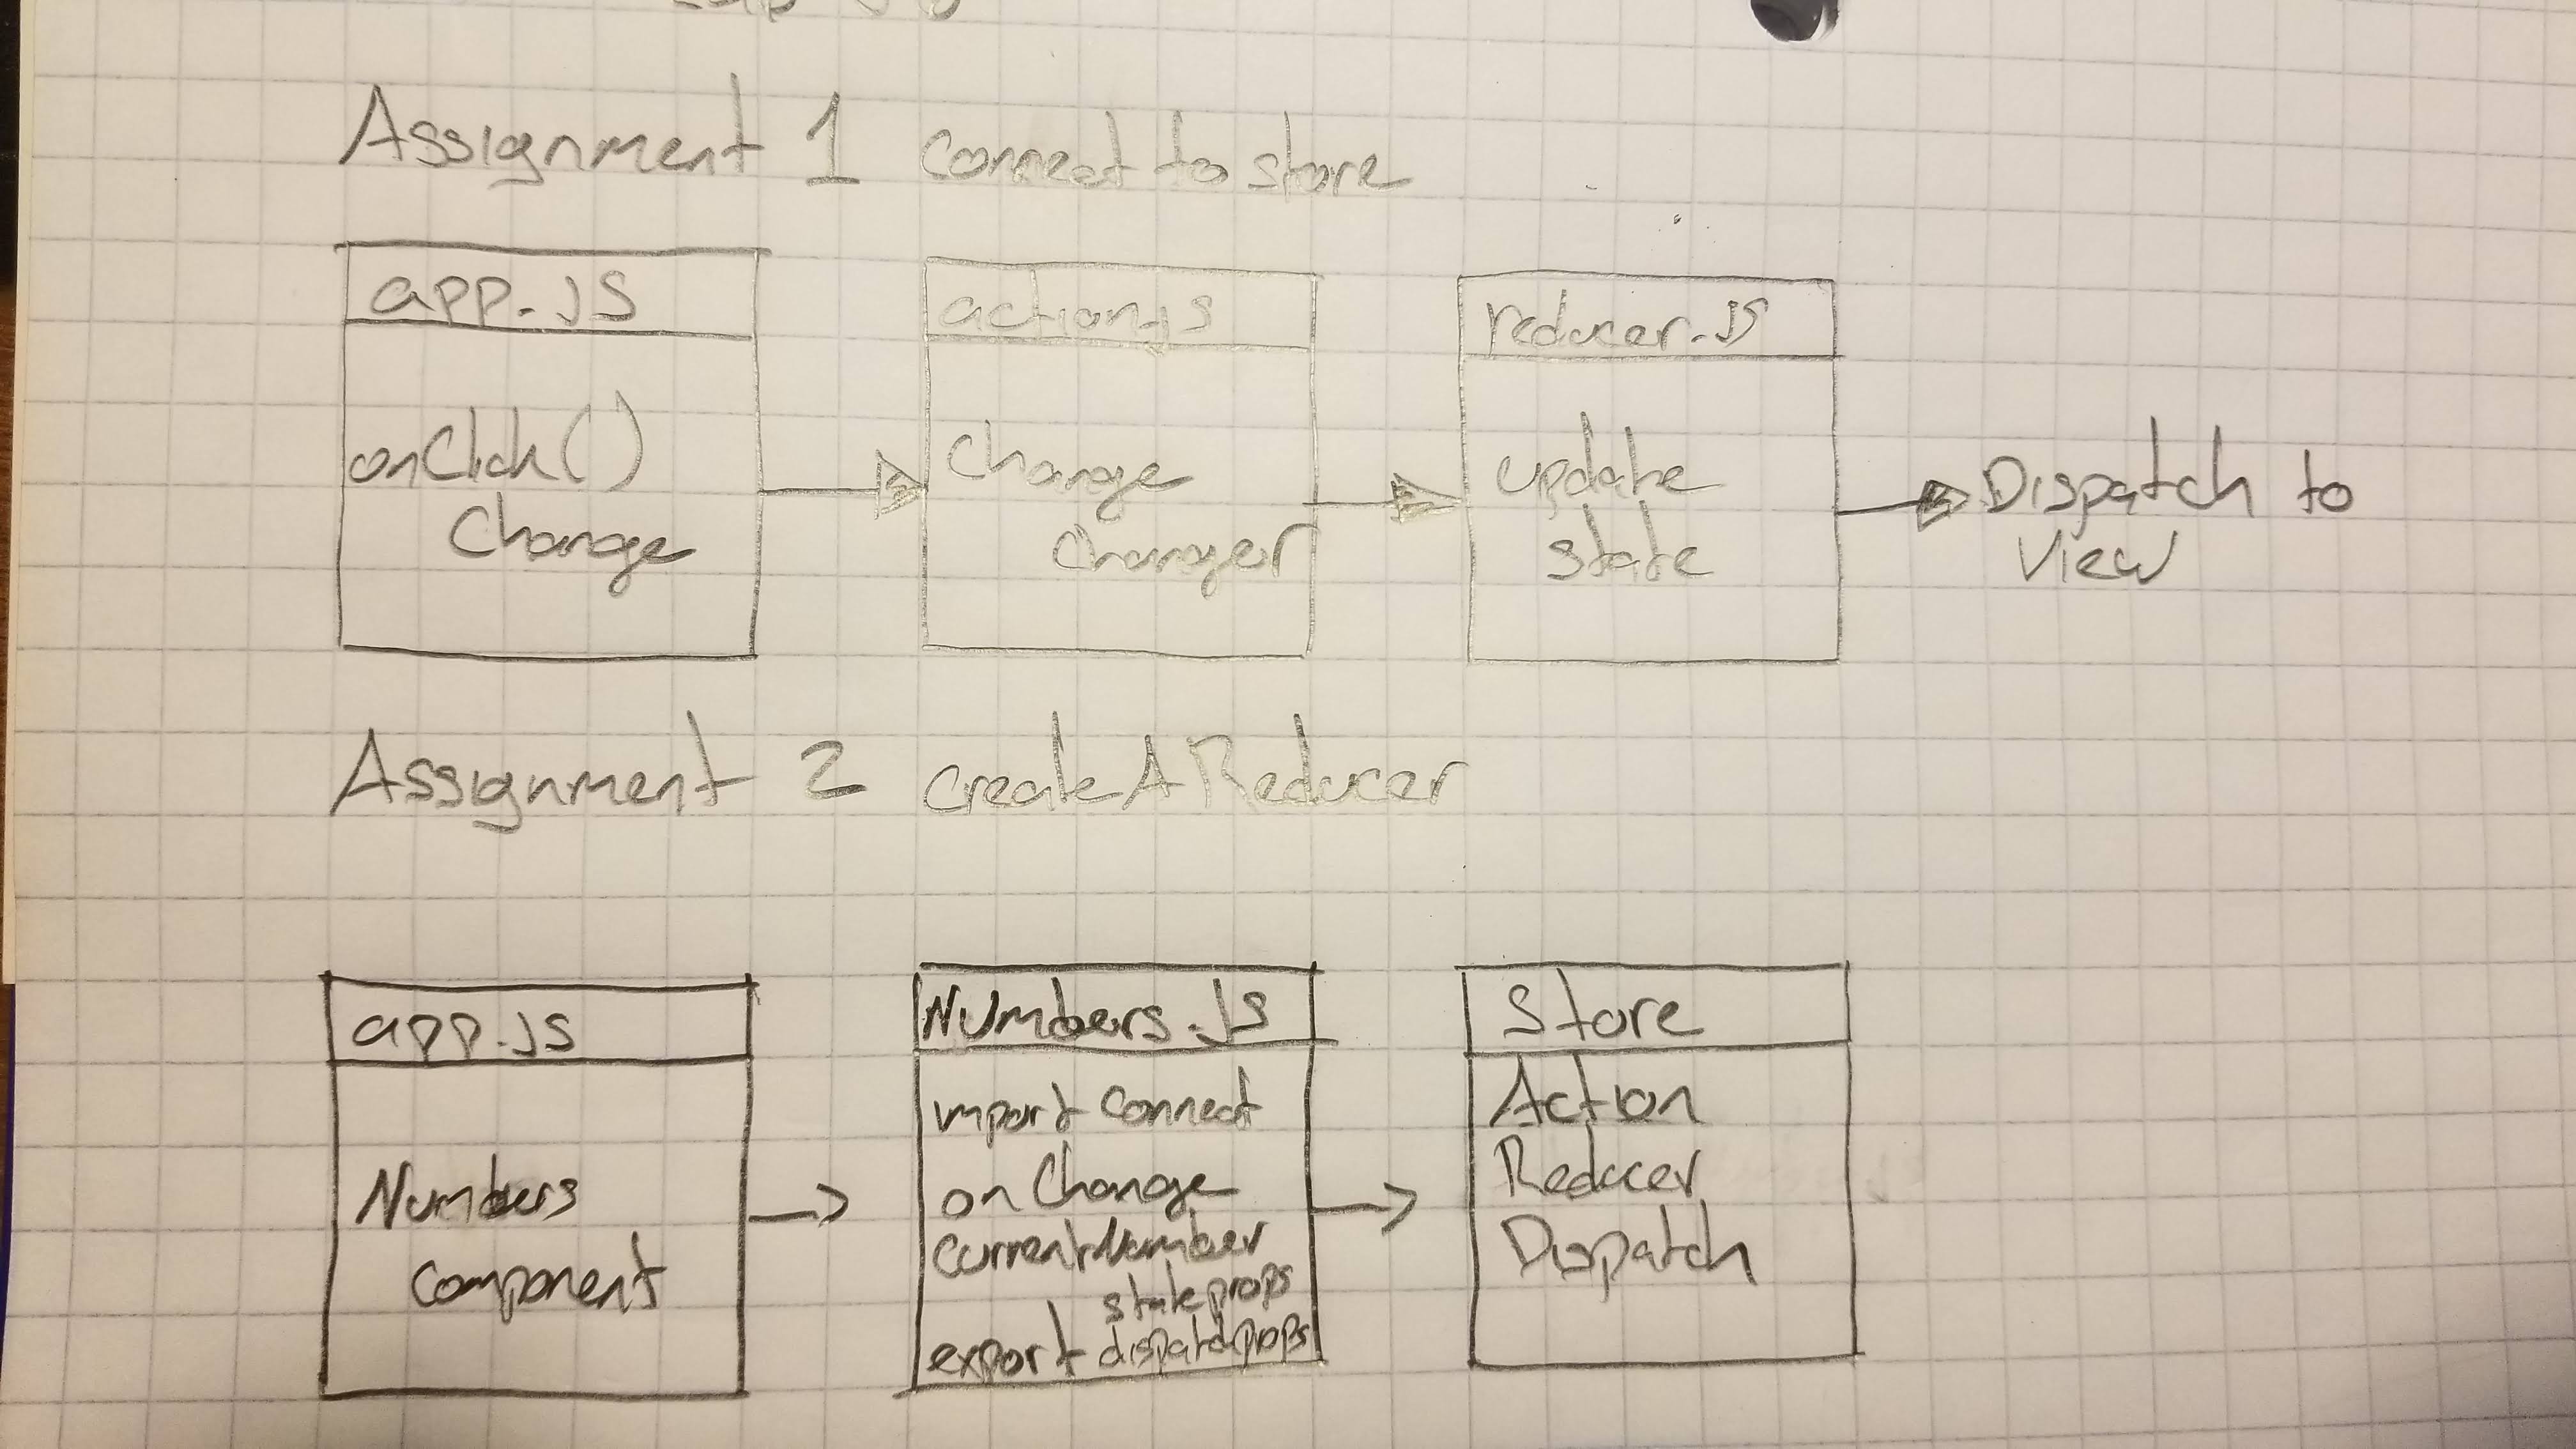 Assignment 1 connect to store
app.JS
onClick()
Change
action.js
Change
Changer
reducer.JS
update
state
Dispatch to
View
Assignment 2 create A Reducer
app.JS
Numbers
component
Numbers.JS
import connect
on Change
currentNumber
state props
export dispatchprops
Store
Action
Reducer
Dispatch